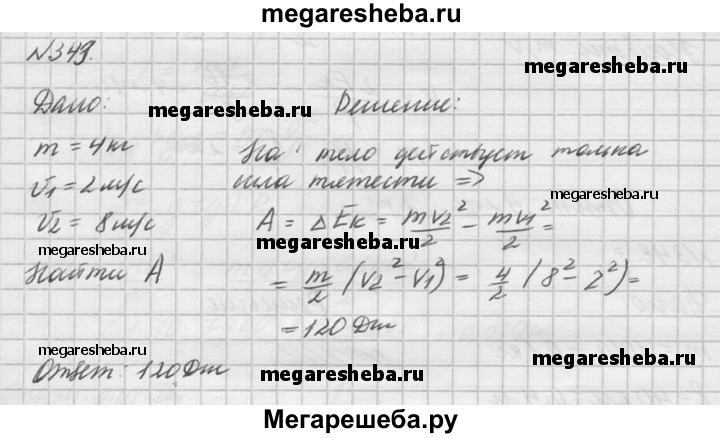 megaresheba.ru
N349.
megaresheba.ru
Дано: Решение:
megaresheba.ru megaresheba.ru
m = 4 кг На тело действует только
сила тяжести =>
v1 = 2 м/с
megaresheba.ru
v2 = 8 м/с A = ΔEк = mv2²/2 - mv1²/2 =
megaresheba.ru megaresheba.ru
Найти A = m/2 (v2² - v1²) = 4/2 (8² - 2²) =
= 120 Дж
megaresheba.ru megaresheba.ru
Ответ: 120 Дж
megaresheba.ru
Мегарешеба.ру